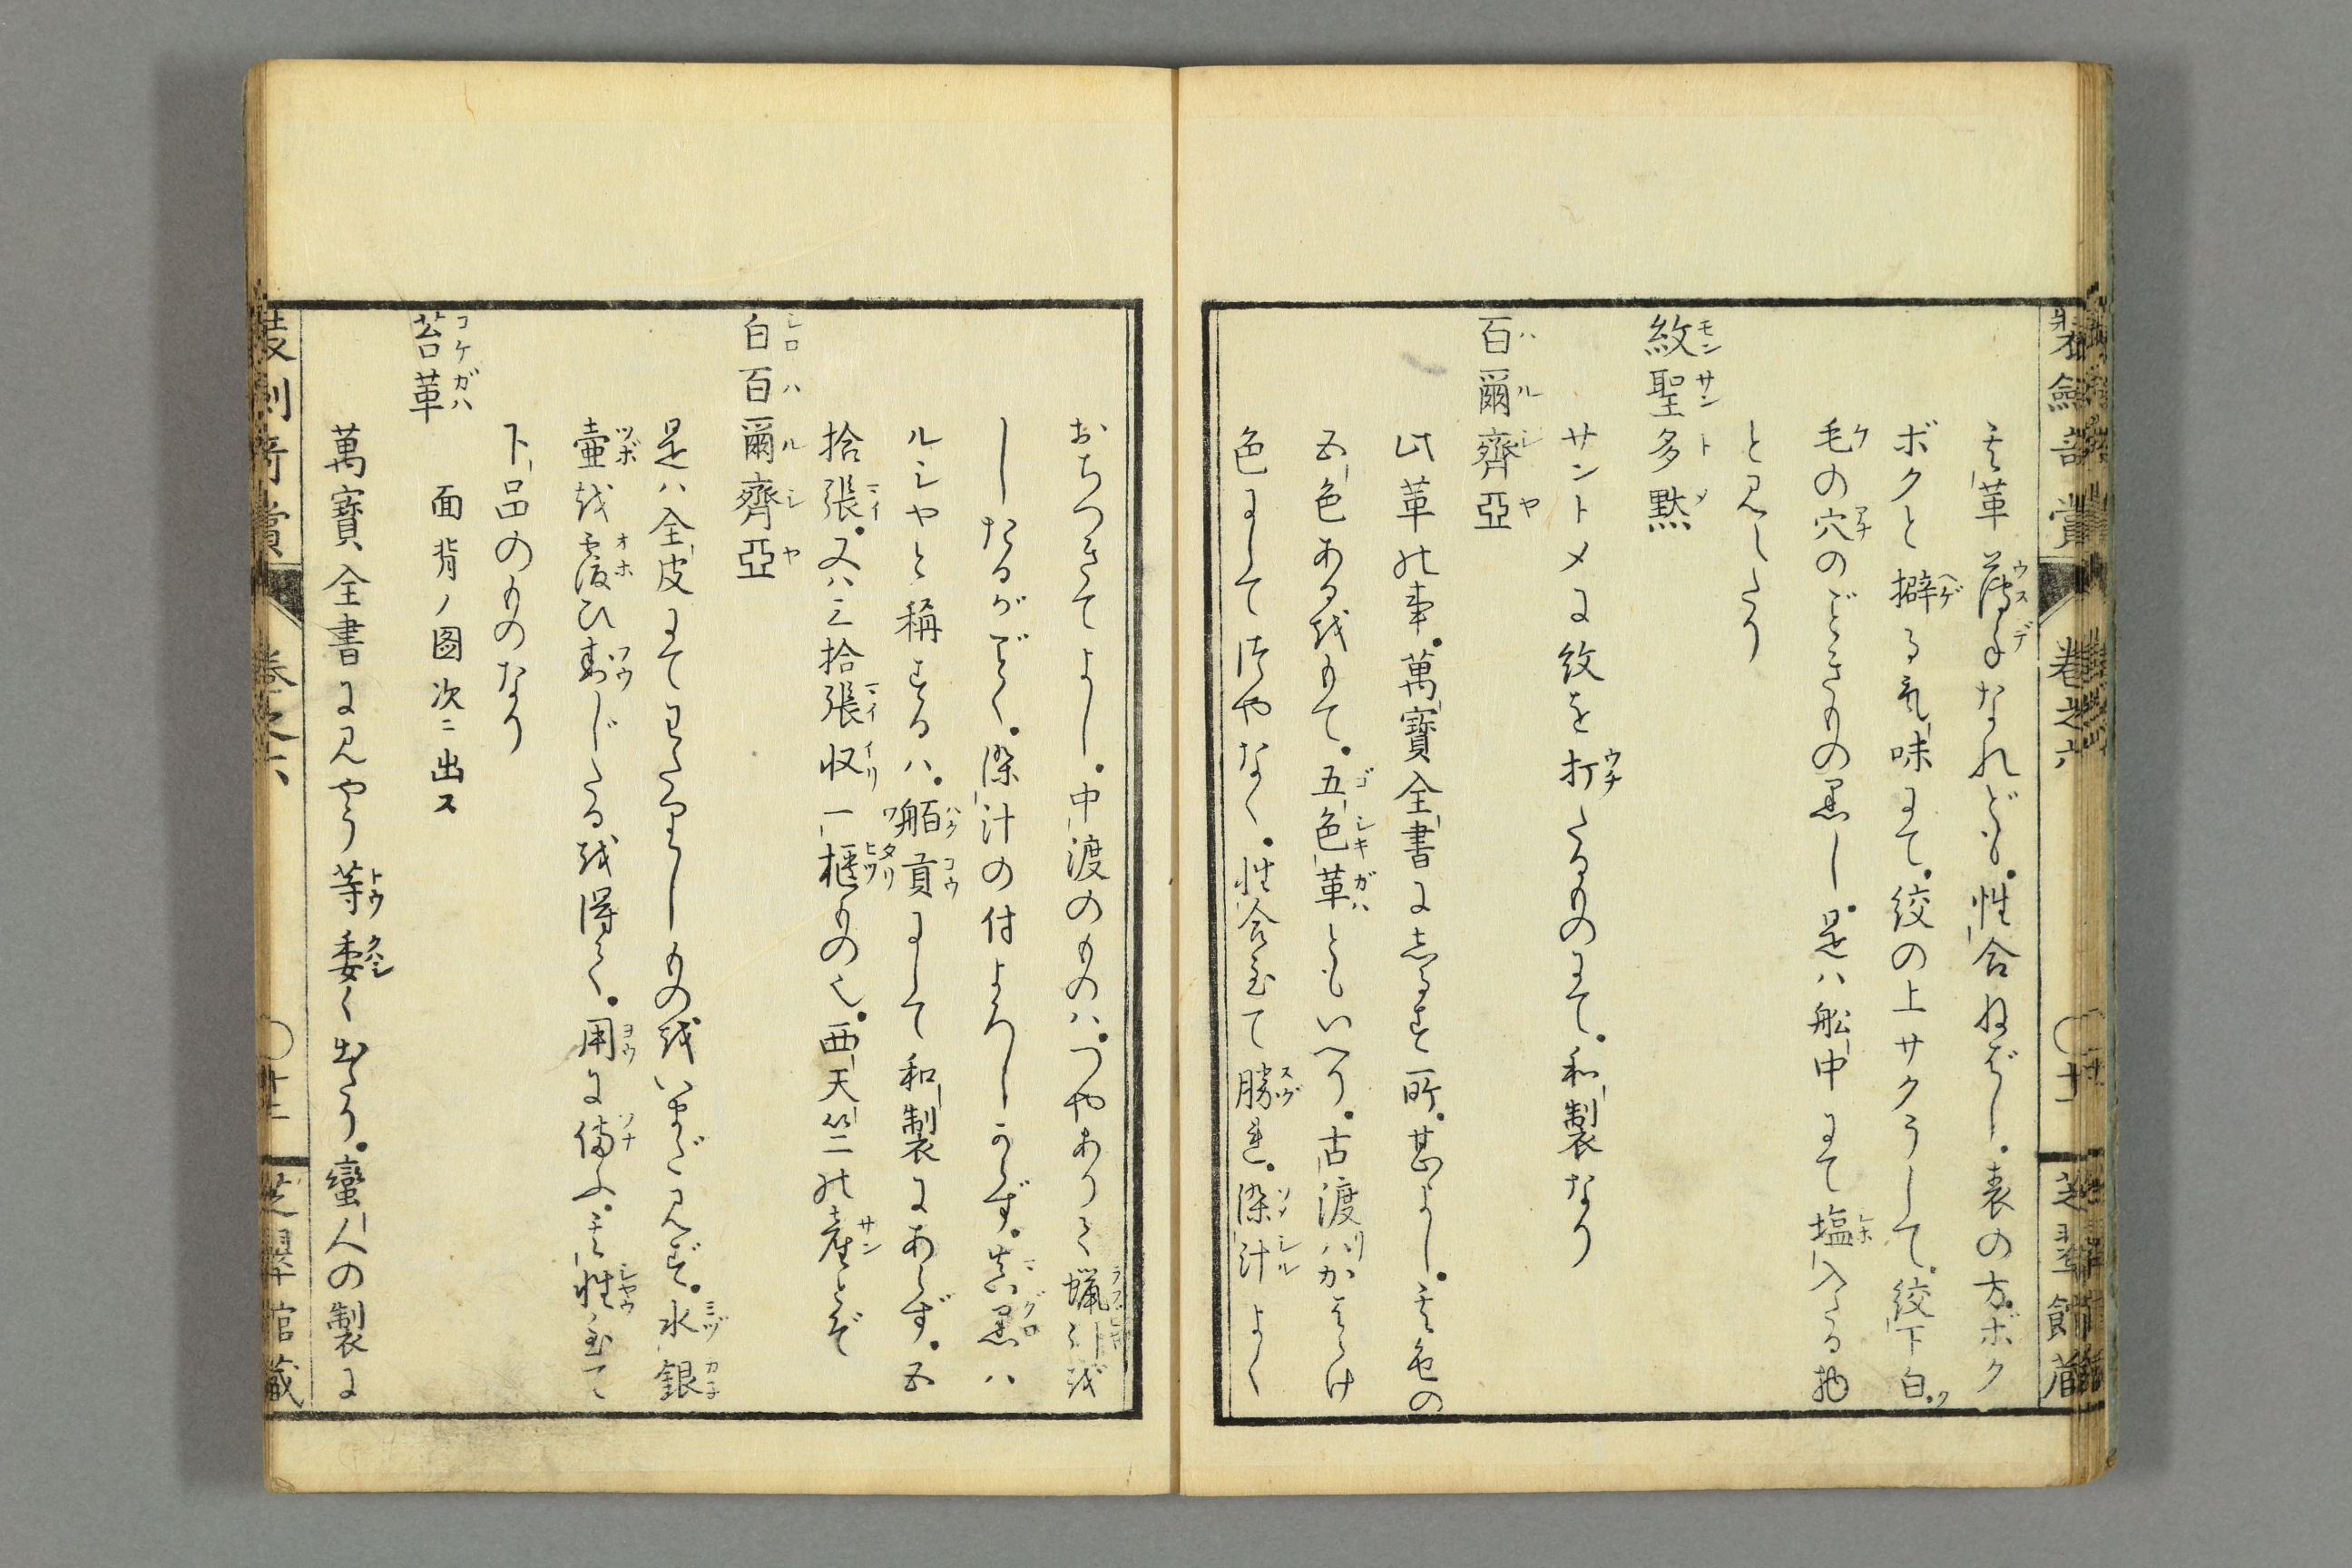 装劔奇賞 卷之六 〇十一 芝翠館藏
其革薄手なれども。性合ねばし。表の方ボク
ボクと擗る気味にて。絞の上サクうして。絞下白ク
毛の穴のごときもの黒し。是ハ船中にて塩入たる物
と見へたり
紋聖多黙
サントメに紋を打たるものにて。和製なり
百爾齊亞
此革の事。萬寳全書にしるす所。甚よし。其色の
五色あるをもて。五色革ともいへり。古渡リハかはらけ
色にしてつやなく。性合至て勝れ。染汁よく
おちつきてよし。中渡のものハ。つやありて蝋引を
したるがごとく。染汁の付よろしからず。真黒ハ
ルシヤと稱するハ。舶貢にして和製にあらず。五
拾張。又ハ三拾張収一櫃もの也。西天竺の産とぞ
白百爾齊亞
是ハ全皮にてわたりしものをいまだ見ず。水銀
壷を覆ひ封じたるを得て。用に備ふ。其性至て
下品のものなり
苔革 面背ノ图次ニ出ス
萬寳全書に見やう等委く出たり。蠻人の製に
装劔奇賞 卷之六 〇十一 芝翠館藏